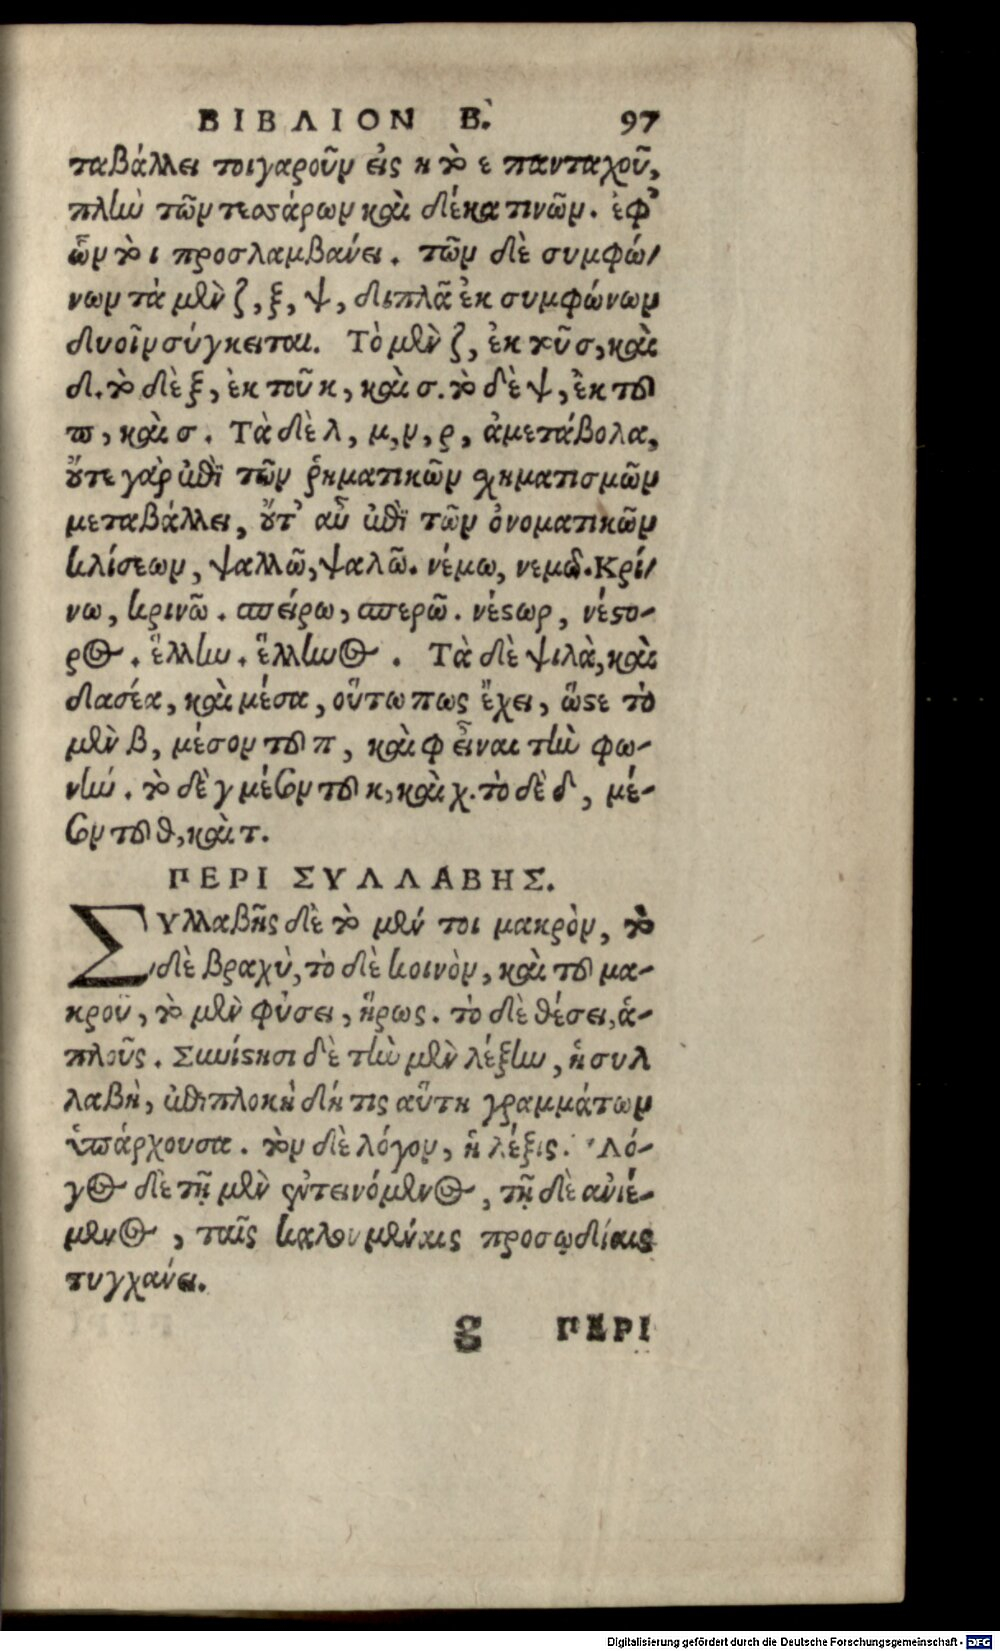 ΒΙΒΛΙΟΝ Β. 97
ταβάλλει τοιγαροῦν εἰς η τὸ ε πανταχοῦ,
πλὴν τῶν τεσσάρων καὶ δέκα τινῶν. ἐφ'
ὧν τὸ ι προσλαμβάνει. τῶν δὲ συμφώ/
νων τὰ μὲν ζ, ξ, ψ, διπλᾶ ἐκ συμφώνων
δυοῖν σύγκειται. Τὸ μὲν ζ, ἐκ τοῦ σ, καὶ
δ. τὸ δὲ ξ, ἐκ τοῦ κ, καὶ σ. τὸ δὲ ψ, ἐκ τοῦ
π, καὶ σ. Τὰ δὲ λ, μ, ν, ρ, ἀμετάβολα,
οὔτε γὰρ ἐπὶ τῶν ῥηματικῶν χηματισμῶν
μεταβάλλει, οὔτ' αὖ ἐπὶ τῶν ὀνοματικῶν
κλίσεων, ψαλλῶ, ψαλῶ. νέμω, νεμῶ. Κρί/
νω, κρινῶ. σπείρω, σπερῶ. νέστωρ, νέστο-
ρος. ἕλλην. ἕλληνος. Τὰ δὲ ψιλὰ, καὶ
δασέα, καὶ μέσα, οὕτω πως ἔχει, ὥστε τὸ
μὲν β, μέσον τοῦ π, καὶ φ εἶναι τὴν φω-
νήν. τὸ δὲ γ μέσον τοῦ κ, καὶ χ. τὸ δὲ δ, μέ-
σον τοῦ θ, καὶ τ.
ΠΕΡΙ ΣΥΛΛΑΒΗΣ.
Συλλαβῆς δὲ τὸ μέν τοι μακρὸν, τὸ
δὲ βραχὺ, τὸ δὲ κοινὸν, καὶ τοῦ μα-
κροῦ, τὸ μὲν φύσει, ἥρως. τὸ δὲ θέσει, ἁ-
πλοῦς. Συνίστησι δὲ τὴν μὲν λέξιν, ἡ συλ
λαβὴ, ἐπιπλοκὴ δή τις αὕτη γραμμάτων
ὑπάρχουσα. τὸν δὲ λόγον, ἡ λέξις. Λό-
γος δὲ τῇ μὲν ἐντεινόμενος, τῇ δὲ ἀνιέ-
μενος, ταῖς καλουμέναις προσῳδίαις
τυγχάνει.
g ΠΕΡΙ
Digitalisierung gefördert durch die Deutsche Forschungsgemeinschaft - DFG